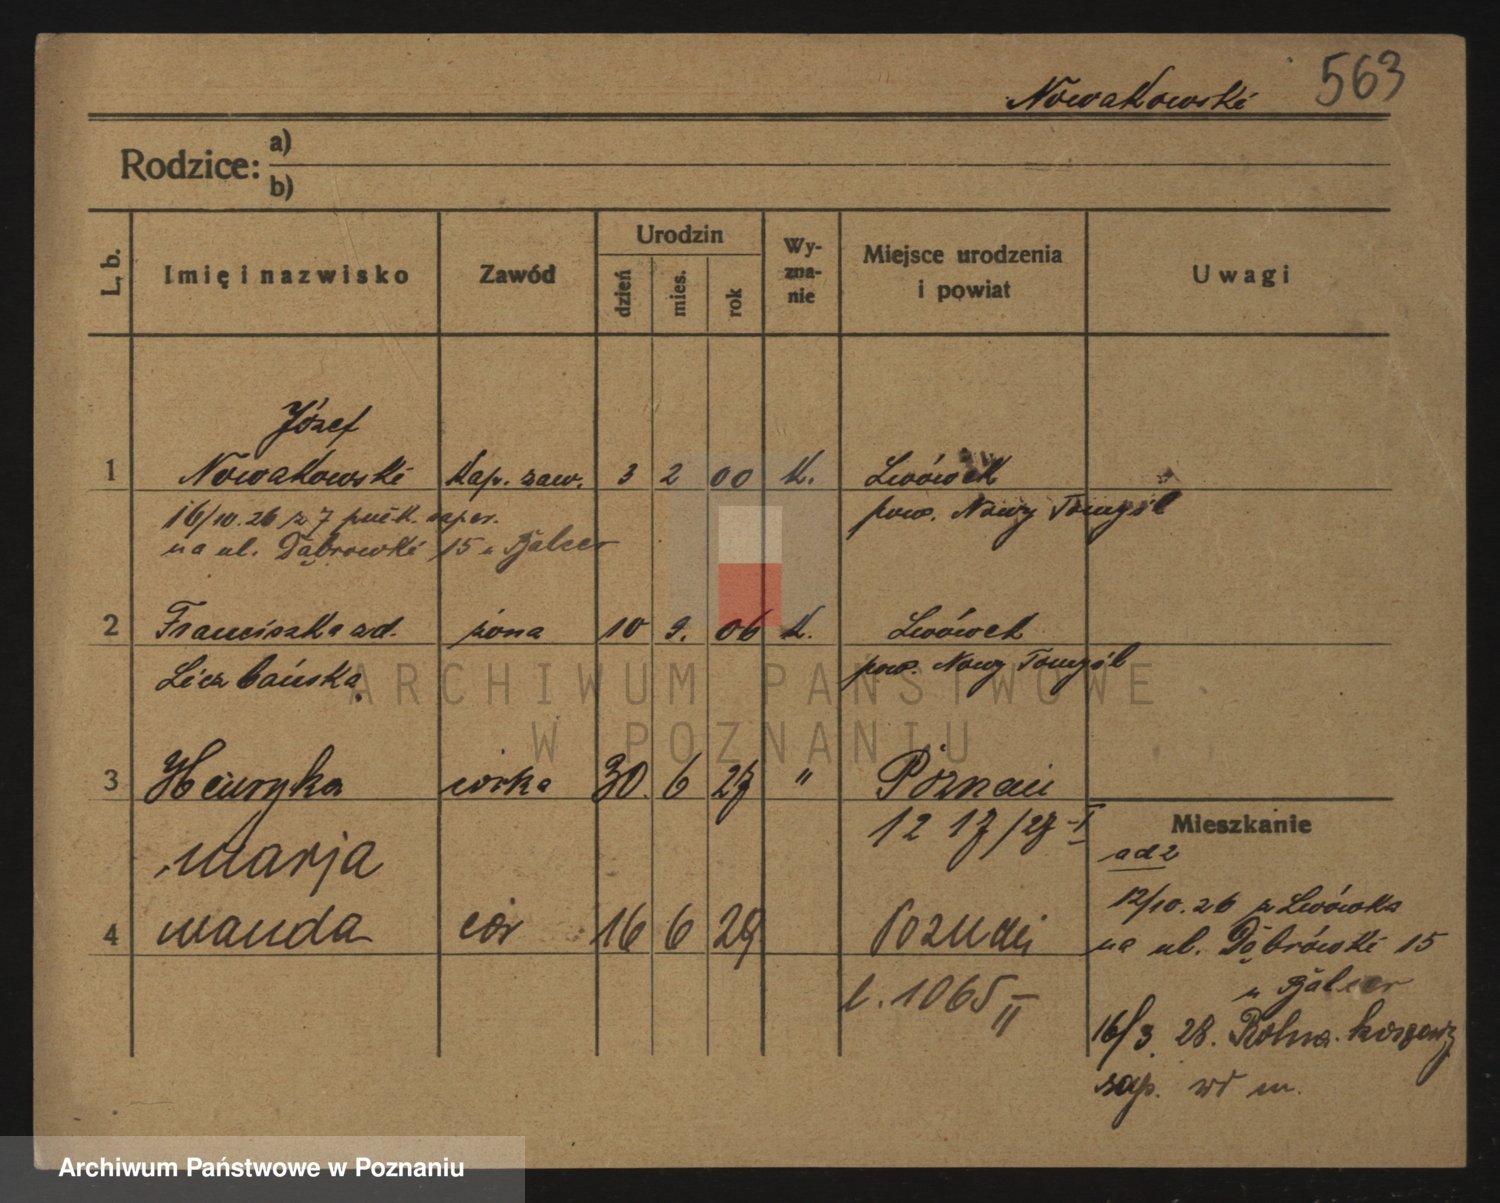 563
Nowakowski
Rodzice: a)
b)
L. b.
Imię i nazwisko
Zawód
Urodzin
dzień
mies.
rok
Wy-
zna-
nie
Miejsce urodzenia
i powiat
Uwagi
Józef
1 Nowakowski kap. zaw. 3 2 00 K. Lwówek
pow. Nowy Tomyśl
16/10.26 z 7 pułk. saper.
na ul. Dąbrowki 15 u Balcer
2 Franciszka zd. żona 10 9. 06 K. Lwówek
Liczbańska pow. Nowy Tomyśl
3 Henryka córka 30. 6 27 " Poznań
12 17/27 I
Marja
4 Wanda cór 16 6 29 Poznań
l. 1065 II
Mieszkanie
ad 2
12/10.26 z Lwówka
na ul. Dąbrówki 15
u Balcer
16/3. 28. Rolna.
sap. w m.
ARCHIWUM PAŃSTWOWE
W POZNANIU
Archiwum Państwowe w Poznaniu